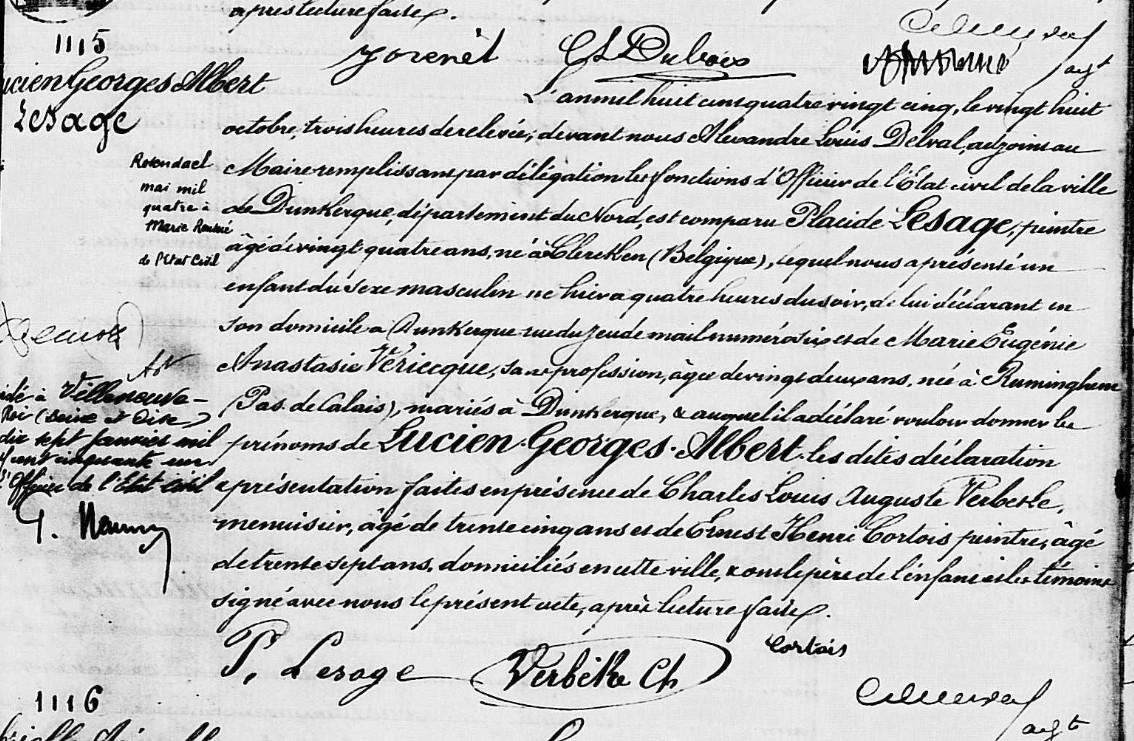 après lecture faite.
Jorenèl Ch Dubois
adjt
1115
Lucien Georges Albert
Lesage
L'an mil huit cent quatre vingt cinq, le vingt huit
octobre, trois heures de relevée, devant nous Alexandre Louis Delval, adjoint au
Maire remplissant par délégation les fonctions d'Officier de l'État civil de la ville
de Dunkerque, département du Nord, est comparu Placide Lesage, peintre
âgé de vingt quatre ans, né à Clercken (Belgique), lequel nous a présenté un
enfant du sexe masculin né hier à quatre heures du soir, de lui déclarant en
son domicile à Dunkerque rue du Jeu de mail numéro six et de Marie Eugénie
Anastasie Véricque, sans profession, âgée de vingt deux ans, née à Ruminghem
(Pas de Calais), mariés à Dunkerque, & auquel il a déclaré vouloir donner les
prénoms de Lucien Georges Albert. les dites déclaration
et présentation faites en présence de Charles Louis Auguste Verbeke,
menuisier, âgé de trente cinq ans et de Ernest Henri Cortois peintre, âgé
de trente sept ans, domiciliés en cette ville, & ont le père de l'enfant et les témoins
signé avec nous le présent acte, après lecture faite.
Rosendael
mai mil
quatre à
Marie
de l'Etat Civil
à Villeneuve-
Roi (Seine et Oise)
dix sept Janvier mil
cent cinquante un.
L'Officier de l'Etat civil
P. Lesage Verbèke Ch Cortois
adjt
1116